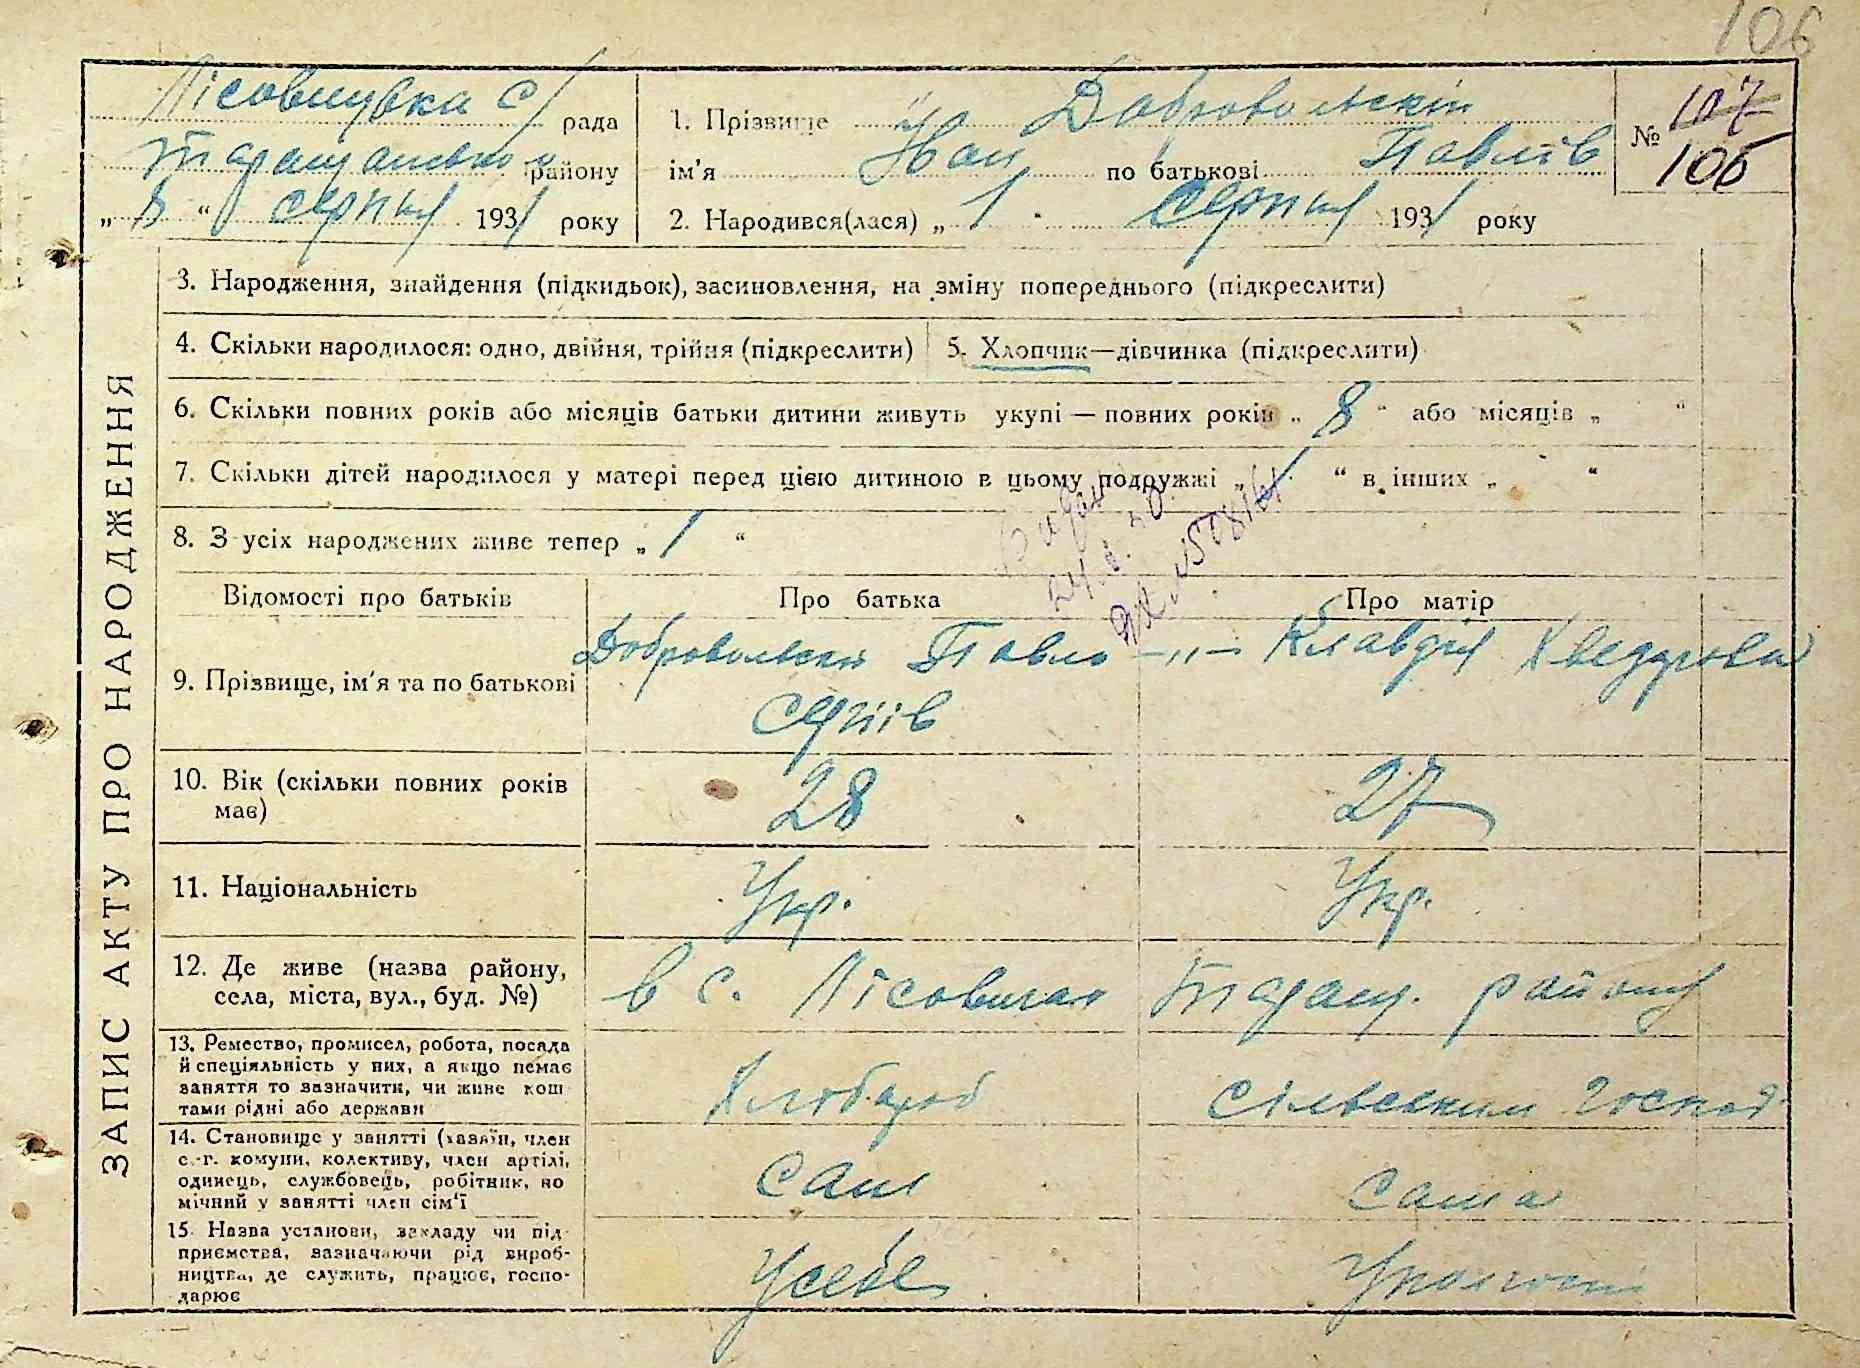 106
Лісовицька с/рада
Таращанського району
„ 8 “ серпня 1931 року
1. Прізвище Добровольскій
ім'я Йван по батькові Павлів
2. Народився(лася) „ 1 “ серпня 1931 року
№ 107
106
ЗАПИС АКТУ ПРО НАРОДЖЕННЯ
3. Народження, знайдення (підкидьок), засиновлення, на зміну попереднього (підкреслити)
4. Скільки народилося: одно, двійня, трійня (підкреслити)
5. Хлопчик—дівчинка (підкреслити)
6. Скільки повних років або місяців батьки дитини живуть укупі — повних років „ 8 “ або місяців „ “
7. Скільки дітей народилося у матері перед цією дитиною в цьому подружжі „ 1 “ в інших „ “
8. З усіх народжених живе тепер „ 1 “
Відомості про батьків
Про батька
Про матір
9. Прізвище, ім'я та по батькові
Добровольскій Павло
Сергіїв
—„— Клавдія Хведурівна
10. Вік (скільки повних років
має)
28
27
11. Національність
Укр.
Укр.
12. Де живе (назва району,
села, міста, вул., буд. №)
в с. Лісовичах Таращ. району
13. Ремество, промисел, робота, посада
й спеціяльність у них, а якщо немає
заняття то зазначити, чи живе кош
тами рідні або держави
Хлібороб
Сільським господ.
14. Становище у занятті (хазяїн, член
с.-г. комуни, колективу, член артілі,
одинець, службовець, робітник, по
мічний у занятті член сім'ї
Сам
Сама
15. Назва установи, закладу чи під
приємства, зазначаючи рід вироб-
ництва, де служить, працює, госпо-
дарює
Усебе